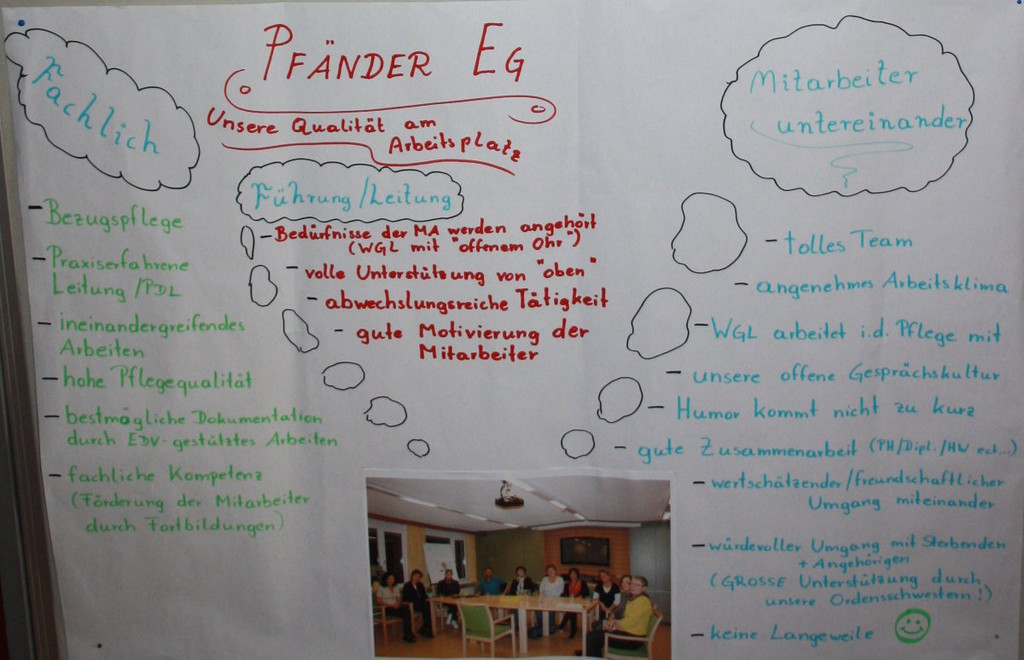 PFÄNDER EG
Unsere Qualität am
Arbeitsplatz
Fachlich
- Bezugspflege
- Praxiserfahrene
Leitung/PDL
- ineinandergreifendes
Arbeiten
- hohe Pflegequalität
- bestmögliche Dokumentation
durch EDV-gestütztes Arbeiten
- fachliche Kompetenz
(Förderung der Mitarbeiter
durch Fortbildungen)
Führung/Leitung
- Bedürfnisse der MA werden angehört
(WGL mit "offenem Ohr")
- volle Unterstützung von "oben"
- abwechslungsreiche Tätigkeit
- gute Motivierung der
Mitarbeiter
Mitarbeiter
untereinander
- tolles Team
- angenehmes Arbeitsklima
- WGL arbeitet i.d. Pflege mit
- unsere offene Gesprächskultur
- Humor kommt nicht zu kurz
- gute Zusammenarbeit (PH/Dipl./HW ect...)
- wertschätzender/freundschaftlicher
Umgang miteinander
- würdevoller Umgang mit Sterbenden
+ Angehörigen
(GROSSE Unterstützung durch
unsere Ordensschwestern!)
- keine Langeweile